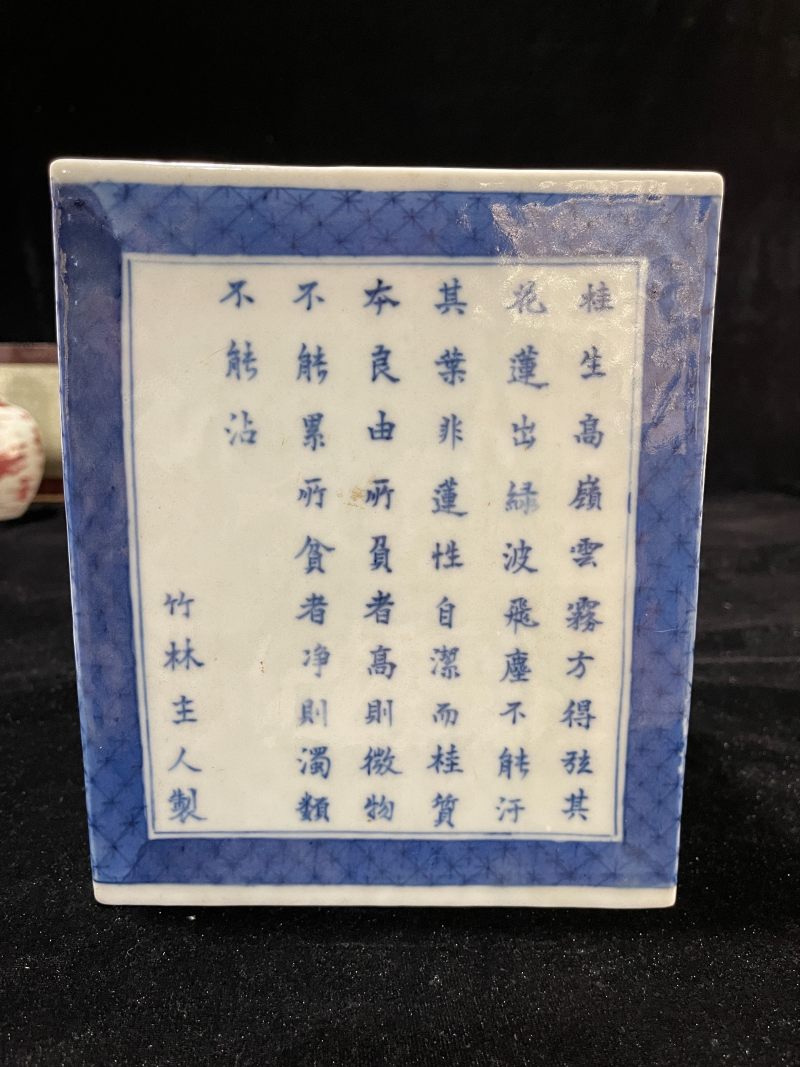 桂生高嶺雲霧方得弦其
花蓮出緑波飛塵不能汙
其葉非蓮性自潔而桂質
本良由所負者高則微物
不能累所貧者净則濁類
不能沾
竹林主人製